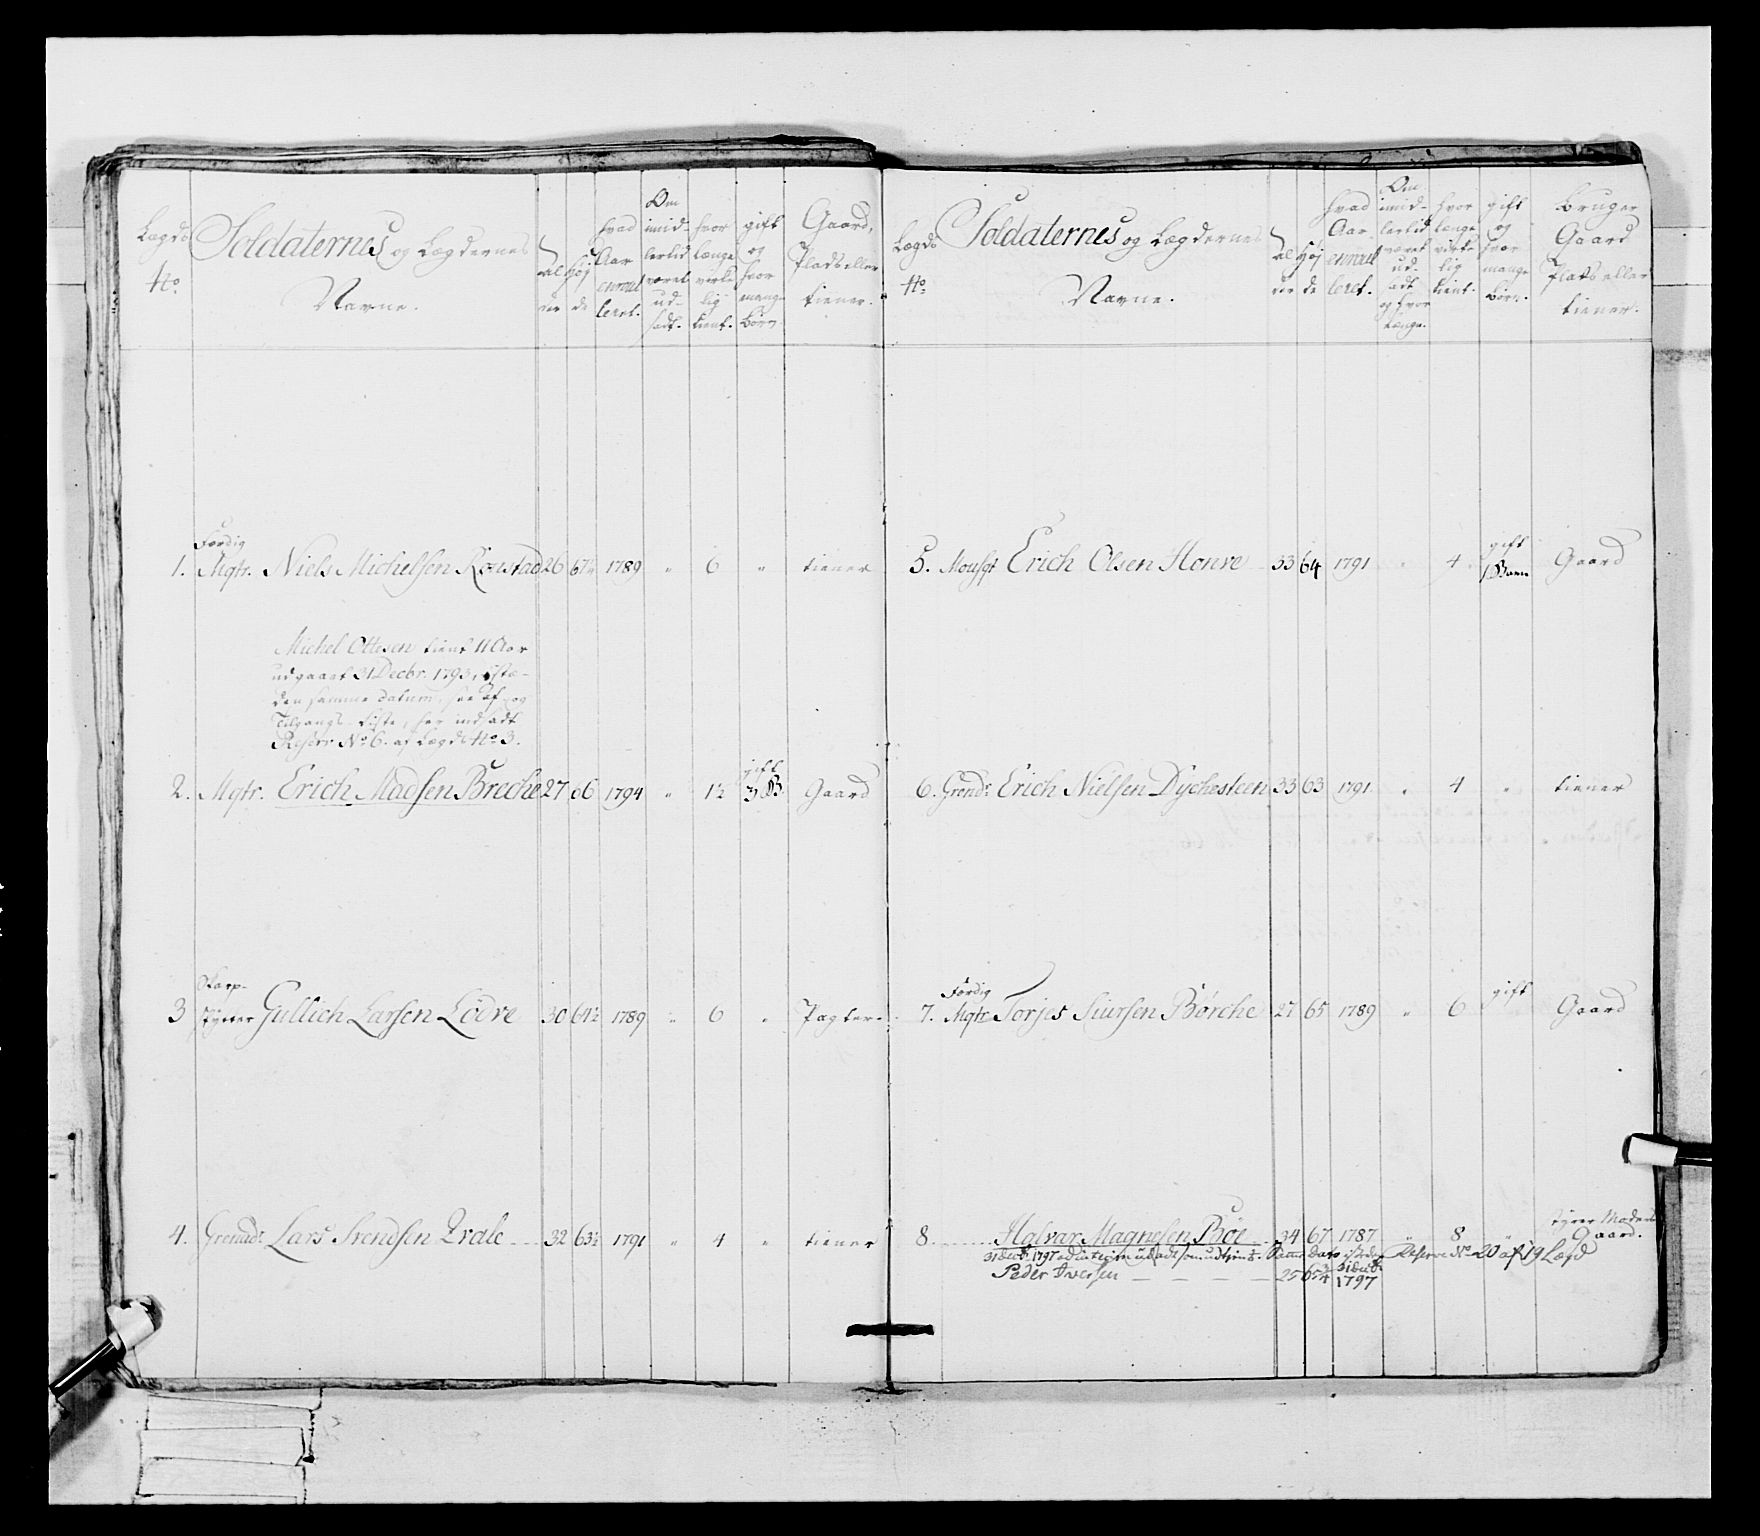 Lægds No
Soldaternes og Lægdernes Navne.
Alder
Højde
hvad Aar enroulleret.
Om imidlertid været udsadt.
hvor længe virkelig tient.
gift og hvor mange børn
Gaard, Plads eller tiener.
Fordig
1. Mqtr. Niels Michelsen Rønstad 26 67½ 1789 " 6 " tiener
Michel Ottesen tient 11 Aar
udgaaet 31 Decbr. 1793, istæ-
den samme datum, see af- og
Tilgangs Liste, her indsadt
Reserv No 6. af Lægd No 3.
gift
2. Mqtr. Erich Madsen Breche 27 66 1794 " 1½ 3 B. Gaard
Skarp-
3 skytter Gullich Larsen Lødve 30 64½ 1789 " 6 " Pagter
4. Grenadr Lars Svendsen Qvale 32 63½ 1791 " 4 " tiener
Lægds No
Soldaternes og Lægdernes Navne.
Alder
Højde
hvad Aar enroulleret.
Om imidlertid været udsadt og hvor længe.
hvor længe virkelig tient.
gift og hvor mange børn.
bruger Gaard Plads eller tiener.
gift
5. Mousqt Erich Olsen Honve 33 64 1791 " 4 1 Barn Gaard
6. Grendr Erich Nielsen Dychesteen 33 63 1791 " 4 " tiener
Fordig gift
7. Mqtr Torjes Siursen Børche 27 65 1789 " 6 Gaard
styrer Moders
8. Halvar Magnesen Bøe 34 67 1787 " 8 " Gaard.
31 Decbr. 1797 udsadt som udtient. Samme Dato isteden Reserve No 20 af 19 Lægd
Peder Iversen 25 65¾ 31 Decbr. 1797